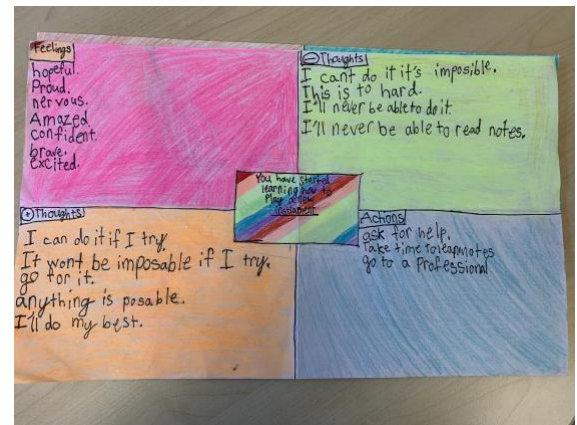 Feelings
hopeful.
Proud.
nervous.
Amazed
confident.
brave.
excited.
⊖Thoughts
I cant do it it's imposible.
This is to hard.
I'll never be able to do it.
I'll never be able to read notes.
You have started
learning how to
Play a new
instament
⊕Thoughts
I can do it if I try.
It wont be imposable if I try.
go for it.
anything is posable.
I'll do my best.
Actions
ask for help.
Take time to learn notes
go to a Professional